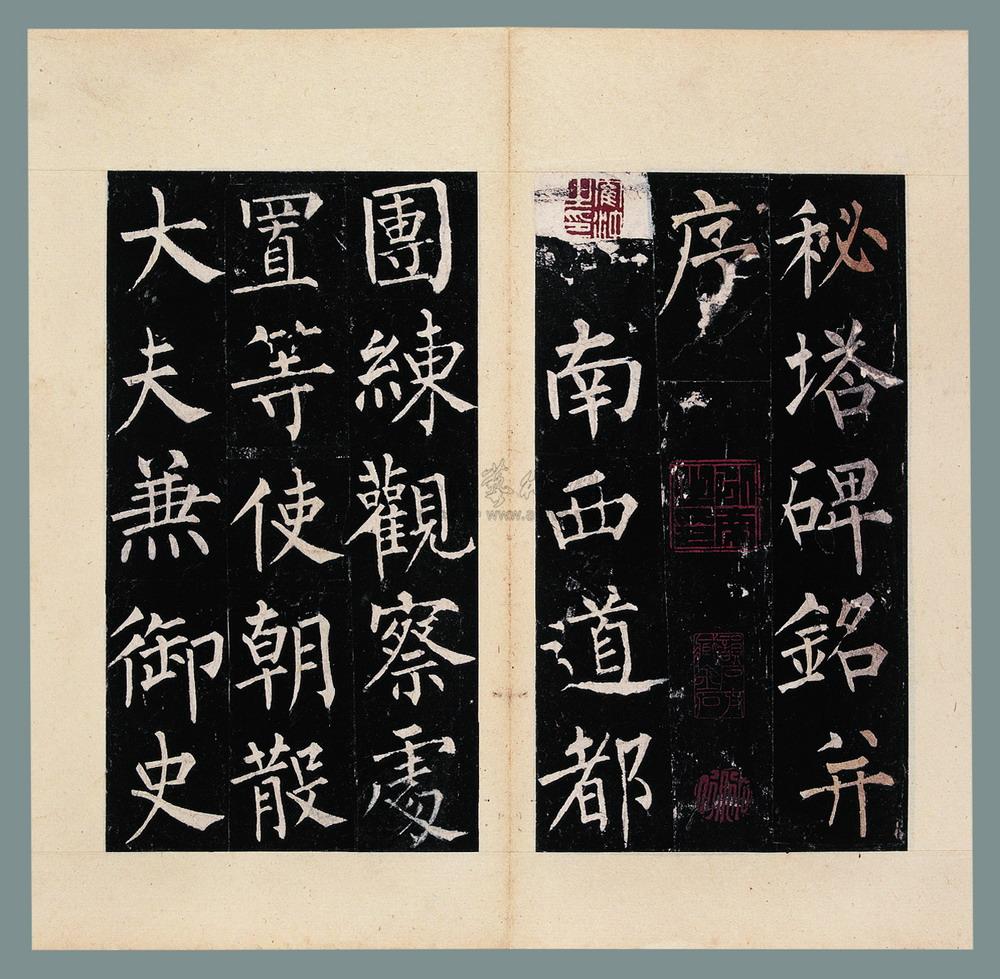 秘塔碑銘并
序
南西道都
團練觀察處
置等使朝散
大夫兼御史